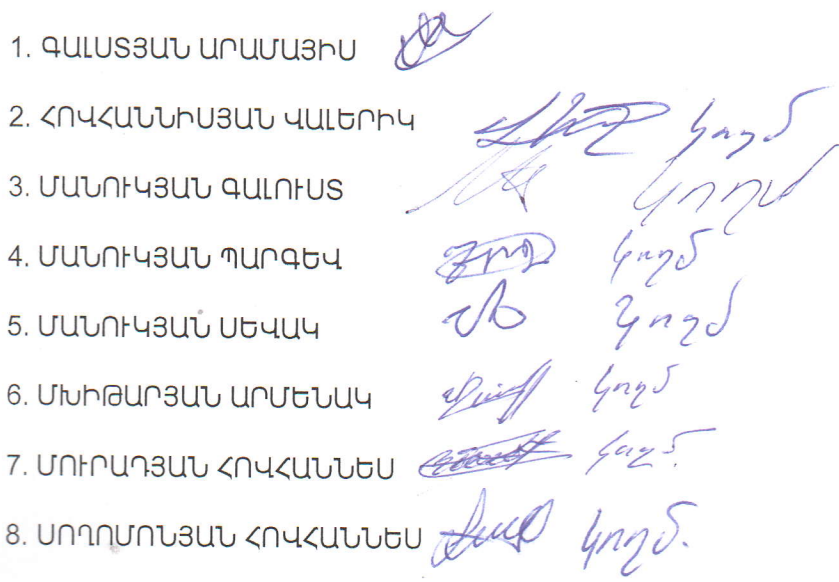 1. ԳԱԼՍՏՅԱՆ ԱՐԱՄԱՅԻՍ
2. ՀՈՎՀԱՆՆԻՍՅԱՆ ՎԱԼԵՐԻԿ կողմ
3. ՄԱՆՈՒԿՅԱՆ ԳԱԼՈՒՍՏ կողմ
4. ՄԱՆՈՒԿՅԱՆ ՊԱՐԳԵՎ կողմ
5. ՄԱՆՈՒԿՅԱՆ ՍԵՎԱԿ կողմ
6. ՄԽԻԹԱՐՅԱՆ ԱՐՄԵՆԱԿ կողմ
7. ՄՈՒՐԱԴՅԱՆ ՀՈՎՀԱՆՆԵՍ կողմ.
8. ՍՈՂՈՄՈՆՅԱՆ ՀՈՎՀԱՆՆԵՍ կողմ.